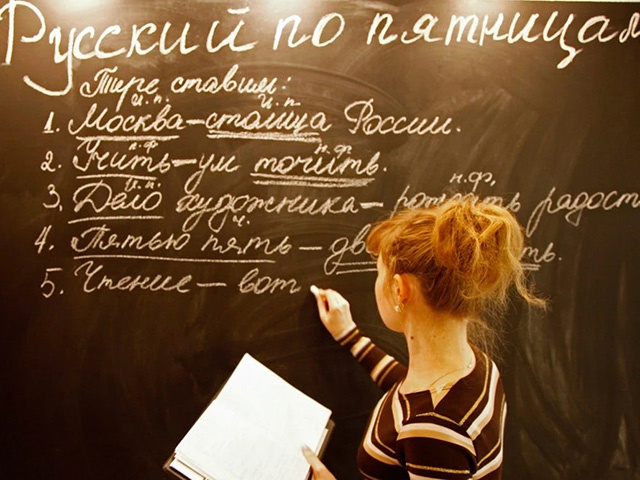 Русский по пятницам
Тире ставим:
И.п. И.п.
1. Москва – столица России.
н.ф н.ф
2. Учить – ум точить.
И.п. н.ф.
3. Дело художника – рождать радост
ч.
4. Пятью пять – дв ть.
5. Чтение – вот